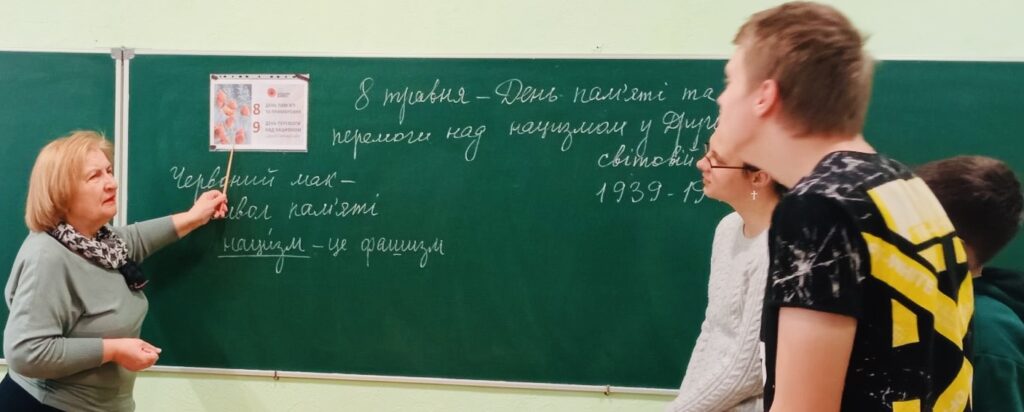 8 травня – День пам'яті та
перемоги над нацизмом у Друг
світовій
1939-19
Червоний мак –
вол пам'яті
нацизм – це фашизм
8 ДЕНЬ ПАМ'ЯТІ
ТА ПРИМИРЕННЯ
9 ДЕНЬ ПЕРЕМОГИ
НАД НАЦИЗМОМ